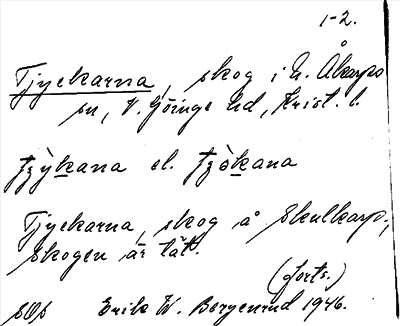 1-2.
Tjyekarna, skog i N. Åkarps
sn, V. Göinge hd, Krist. l.
tzỳkana el. tzòkana
Tjyekarna, skog å Skulkarp,
skogen är tät.
(forts.)
SOS Erik W. Bergenrud 1946.